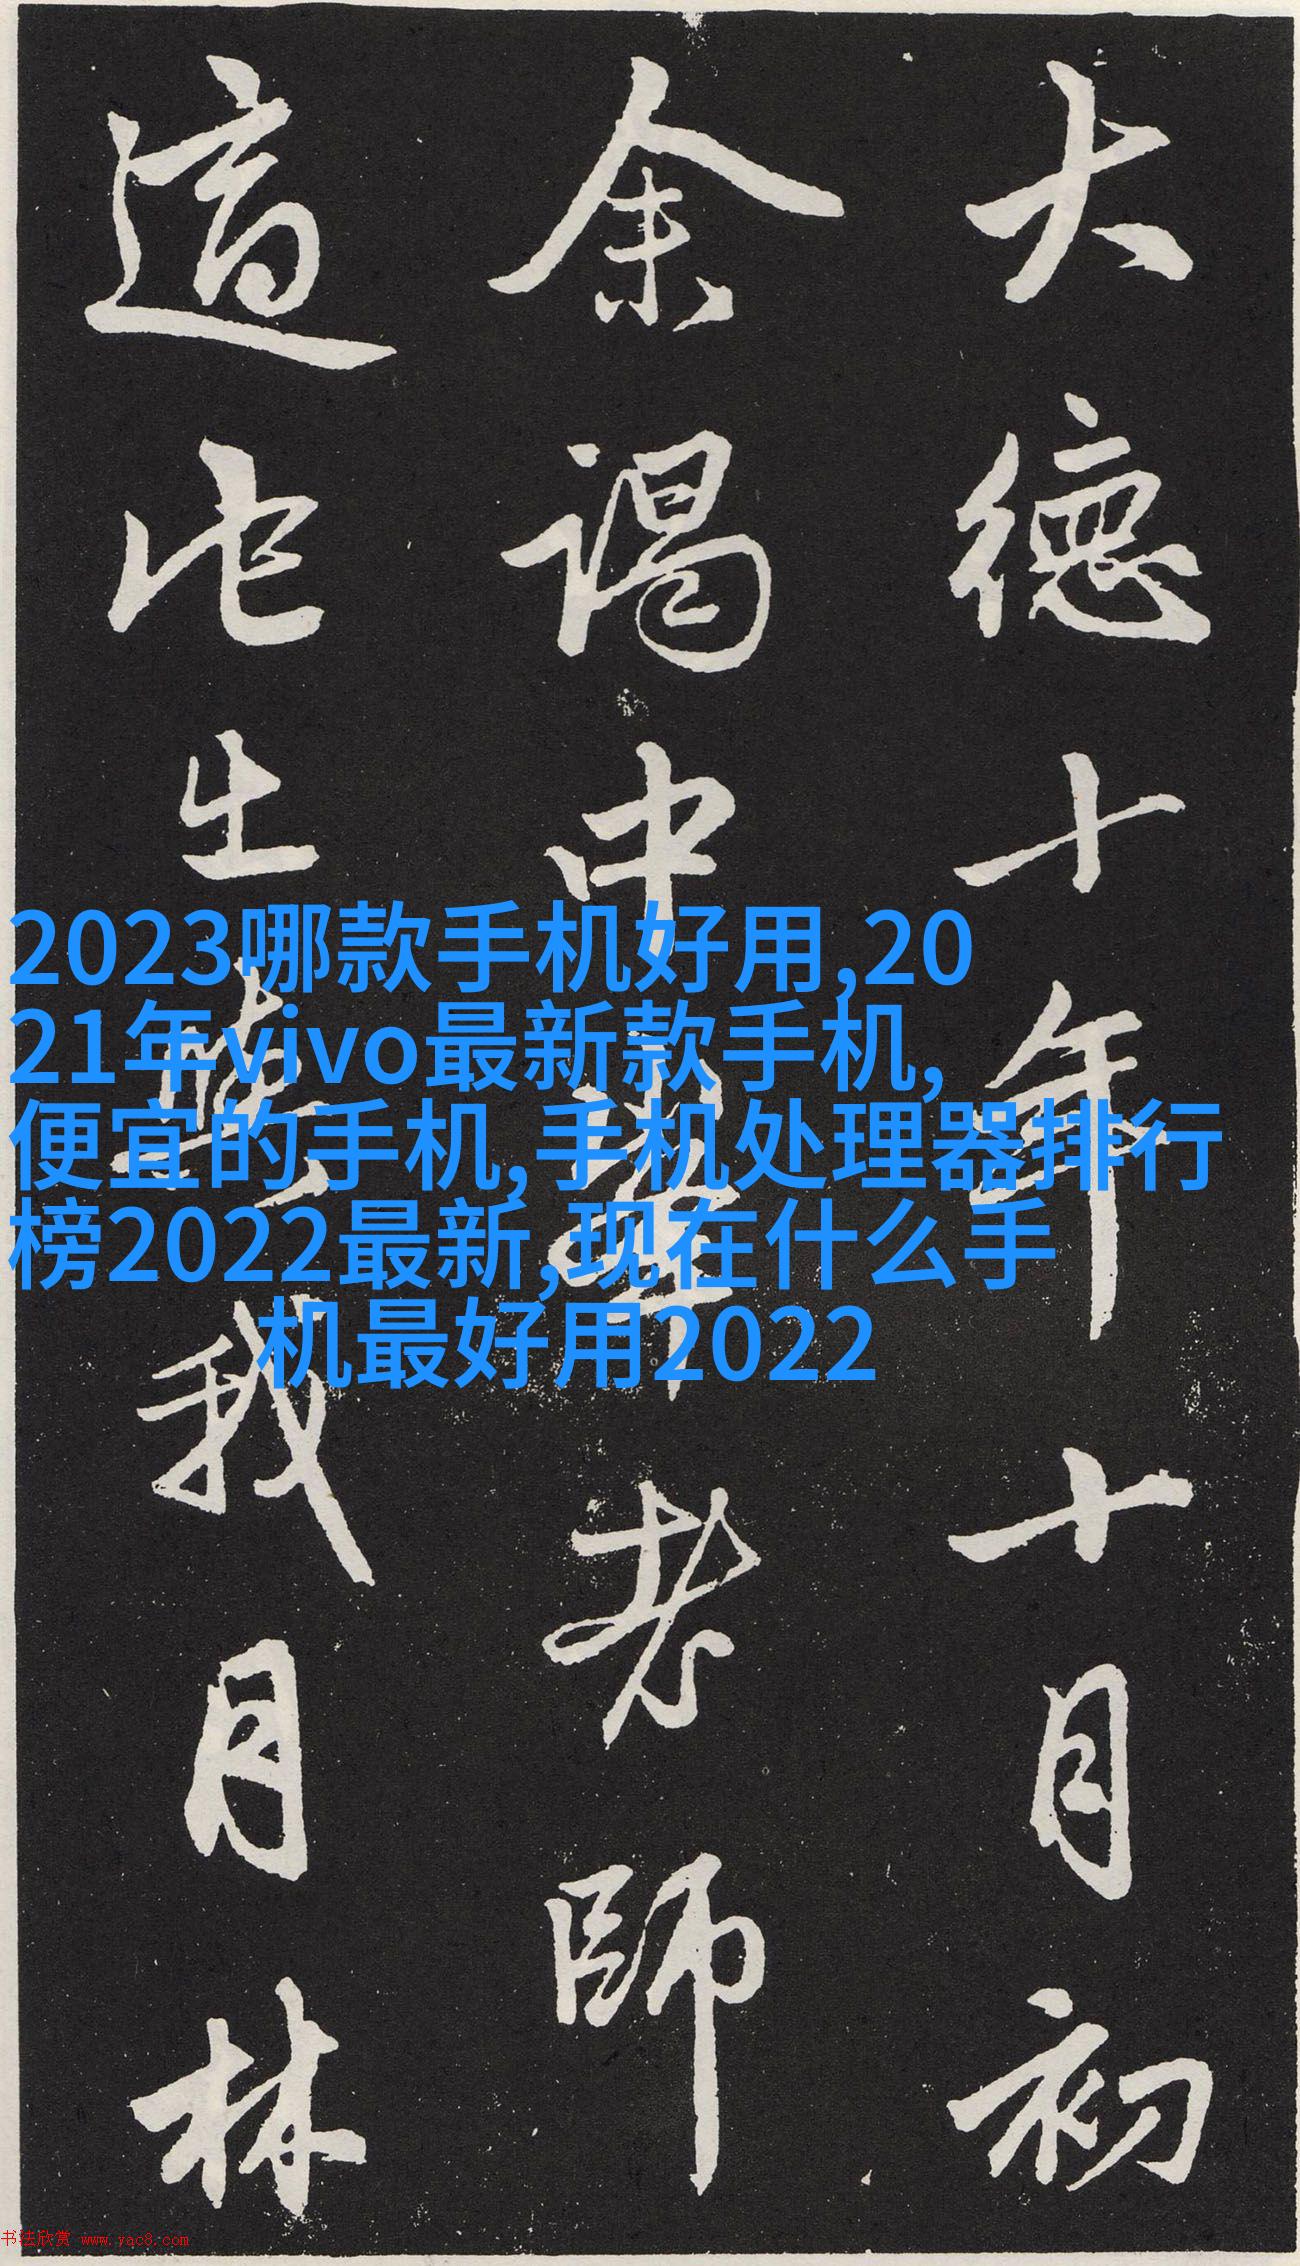 大德十年十月初
余謁中峯老師
適此出喚我月林
2023哪款手机好用,20
21年vivo最新款手机,
便宜的手机,手机处理器排行
榜2022最新,现在什么手
机最好用2022
书法欣赏 www.yac8.com